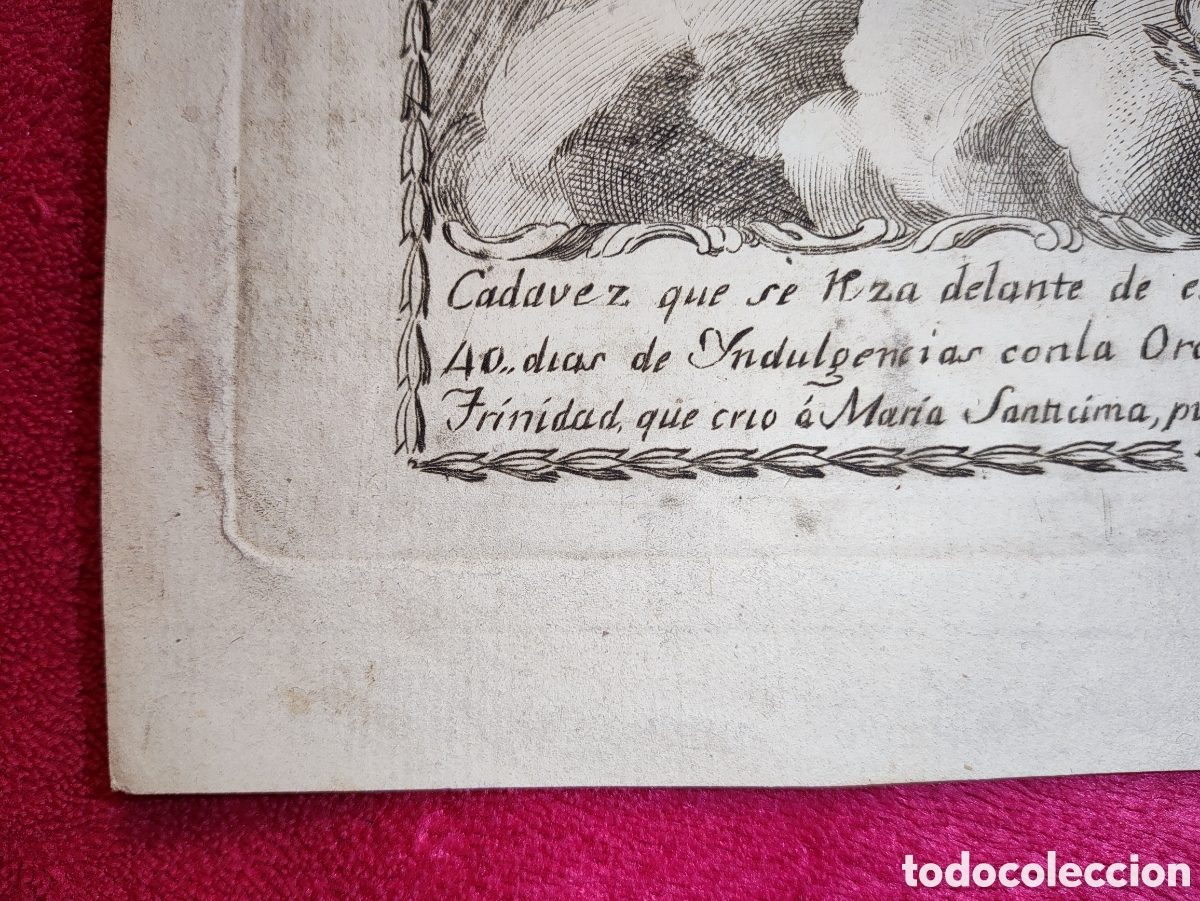 Cadavez que sè Rza delante de e
40,, dias de Yndulgencias conla Ora
Trinidad, que crio á Maria Santicima, pr
todocoleccion
todocoleccion.net